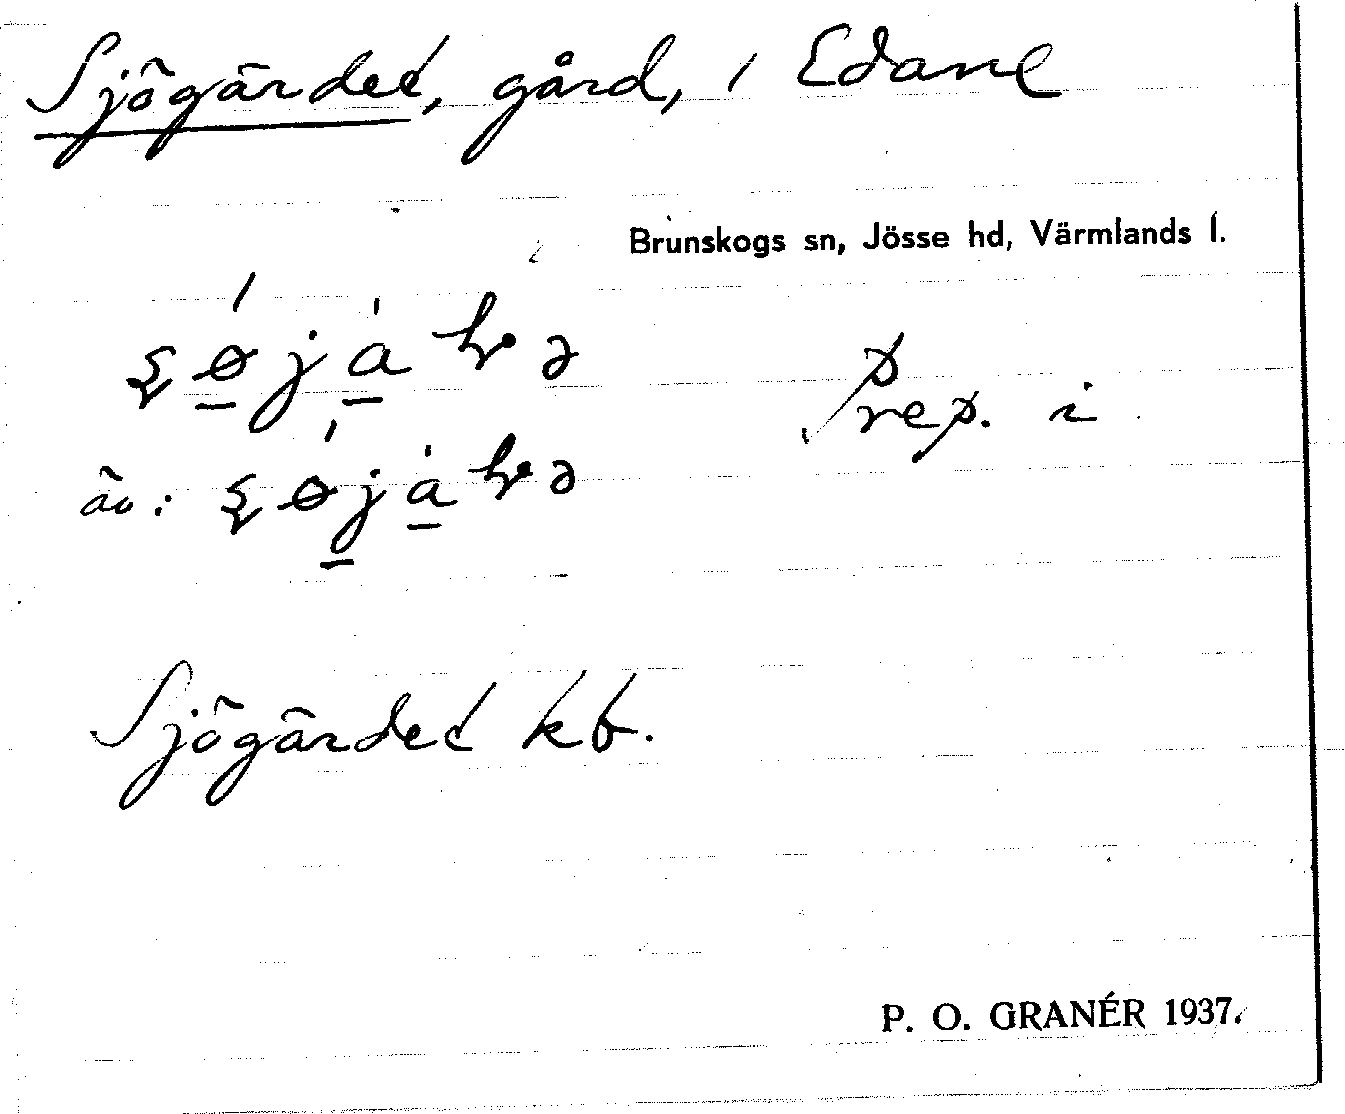 Sjögärdet, gård, i Edane
Brunskogs sn, Jösse hd, Värmlands l.
Prep. i
äv:
Sjögärdet kb.
P. O. GRANÉR 1937.